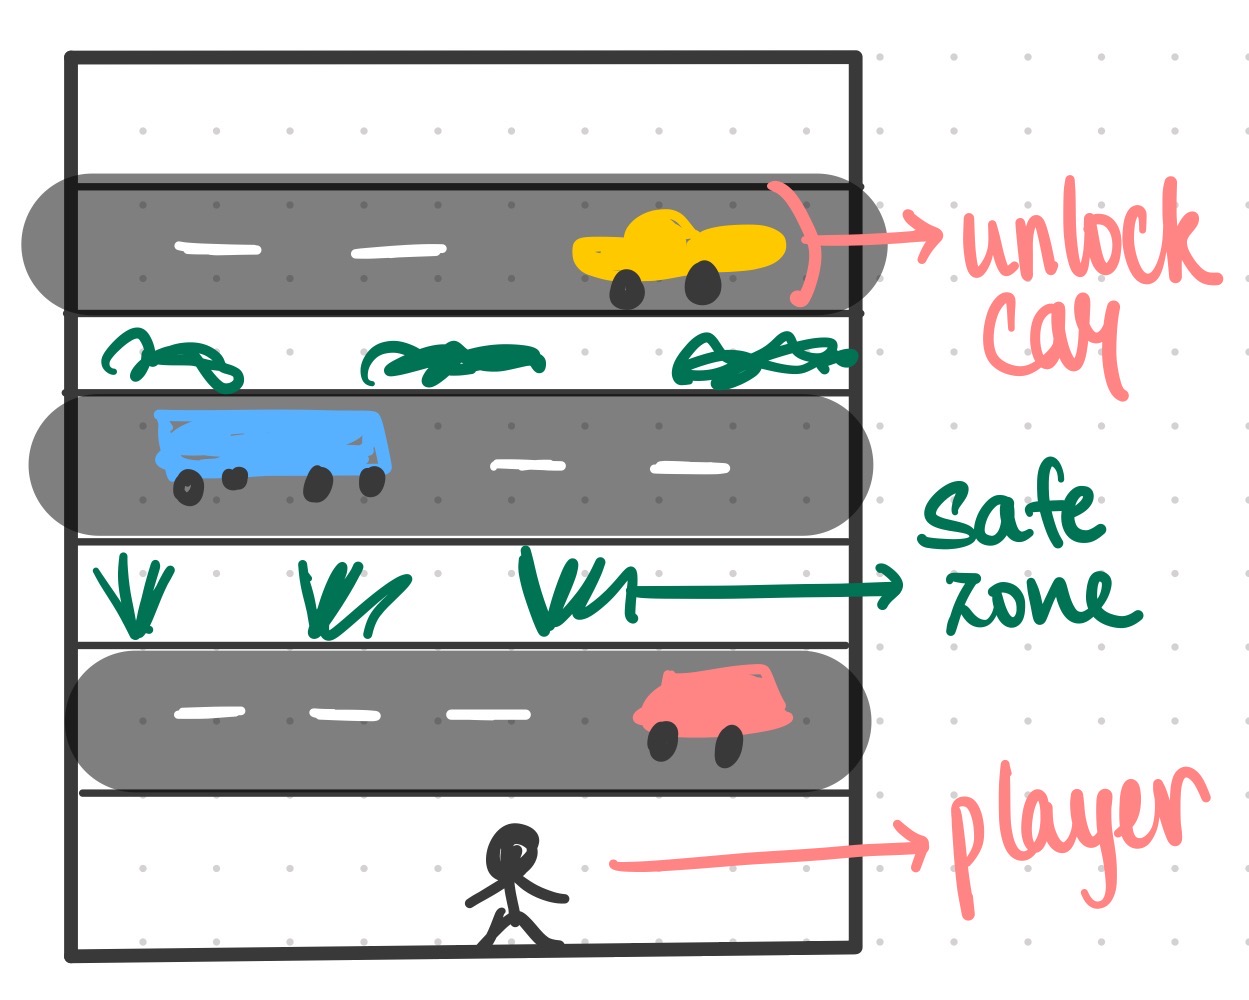 unlock
car
safe
zone
player